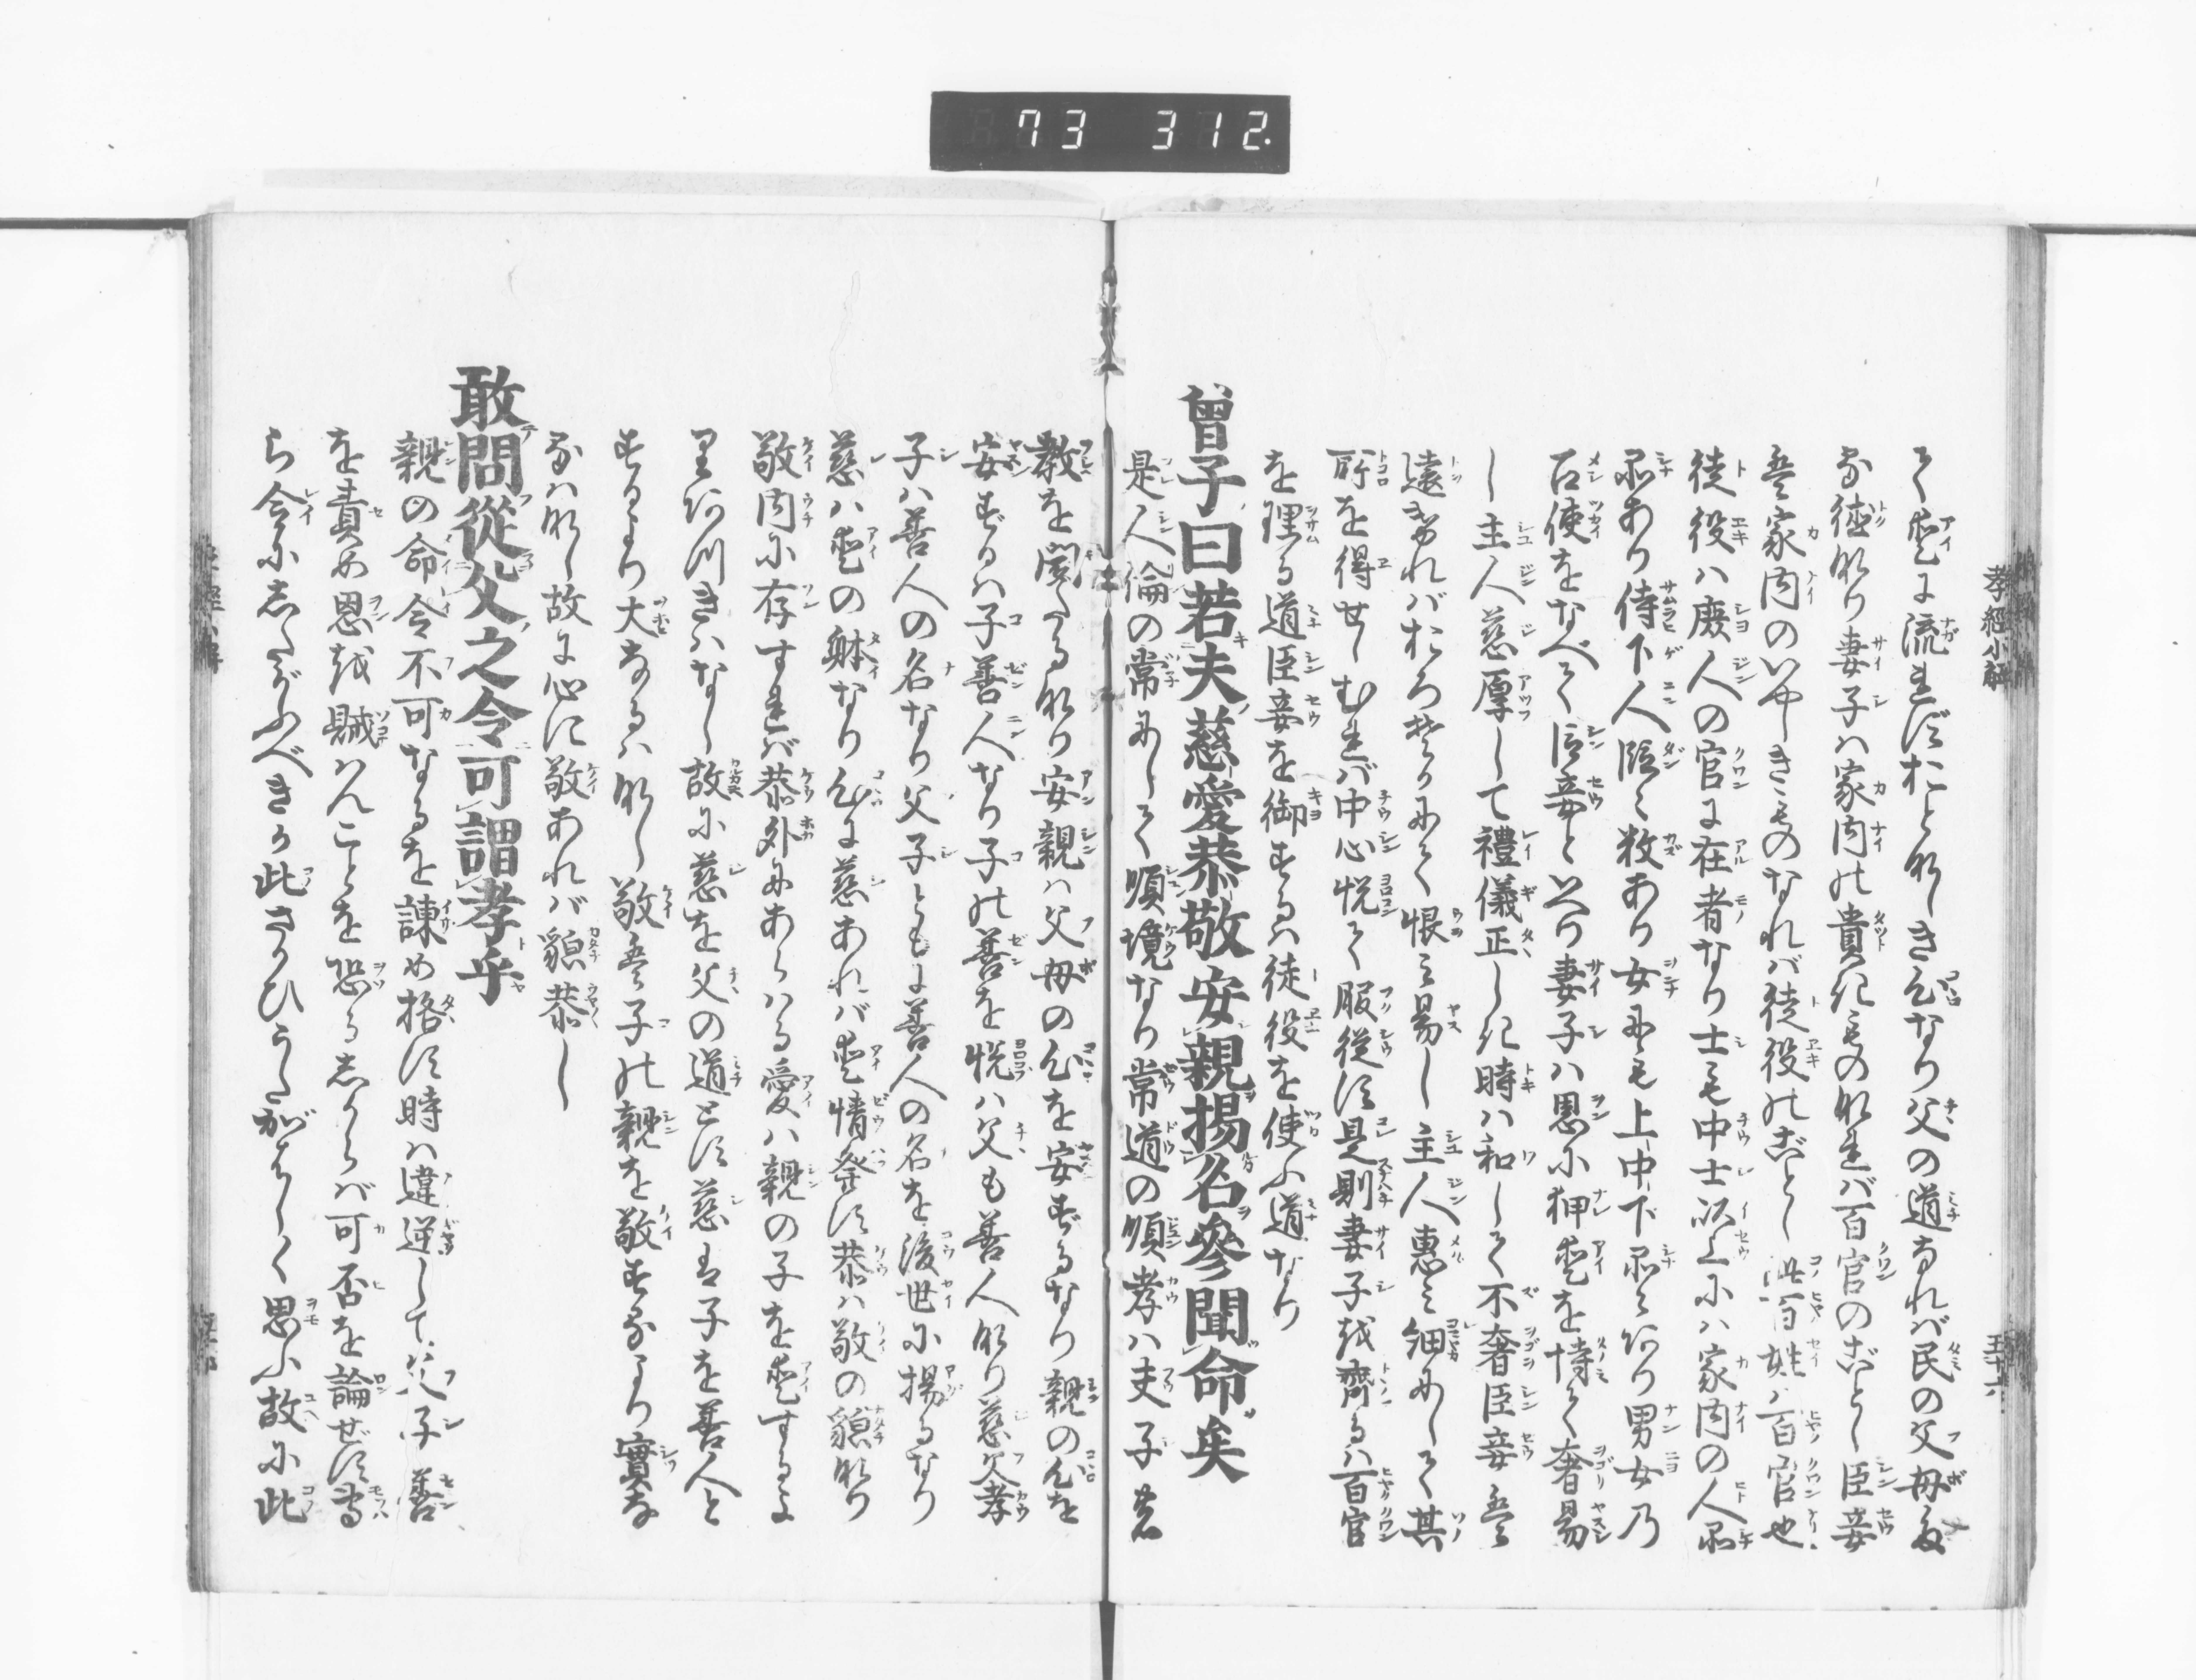 73 312.
孝經小解
五十六
く愛に流れずおとなしき心なり父の道なれば民の父母た
る徳なり妻子は家内の貴きものなれば百官のごとし臣妾
吾家内のいやしきものなれば徒役のごとし此百姓は百官也
徒役は庶人の官に在者なり士も中士以上には家内の人品
品あり侍下人段々数あり女にも上中下品々あり男女乃
召使をなべて臣妾といへり妻子は恩に狎愛を恃て奢易
し主人慈厚して禮儀正しき時は和して不奢臣妾吾
遠ければおろそかにて恨み易し主人惠み細にして其
所を得せしむれば中心悦て服從す是則妻子を齊るは百官
を理る道臣妾を御するは徒役を使ふ道なり
曾子曰若夫慈愛恭敬安親揚名參聞命矣
是人倫の常にして順境なり常道の順孝は夫子の
教を聞たるなり安親は父母の心を安ずるなり親の心を
安ずるは子善人なり子の善を悦は父も善人なり慈父孝
子は善人の名なり父子ともに善人の名を後世に揚るなり
慈は愛の躰なり心に慈あれば愛情発す恭は敬の貌なり
敬内に存すれば恭外にあらはる愛は親の子を愛するよ
り切なるはなし故に慈を父の道とす慈は子を善人と
するより大なるは無し敬は子の親を敬するより實な
るはなし故に心に敬あれば貌恭し
敢問從父之令可謂孝乎
親の命令不可なるを諫め格す時は違逆して父子善
を責め恩を賊はんことを恐る志からば可否を論ぜず専
ら令に志たがふべきか此さかひうたがはしく思ふ故に此